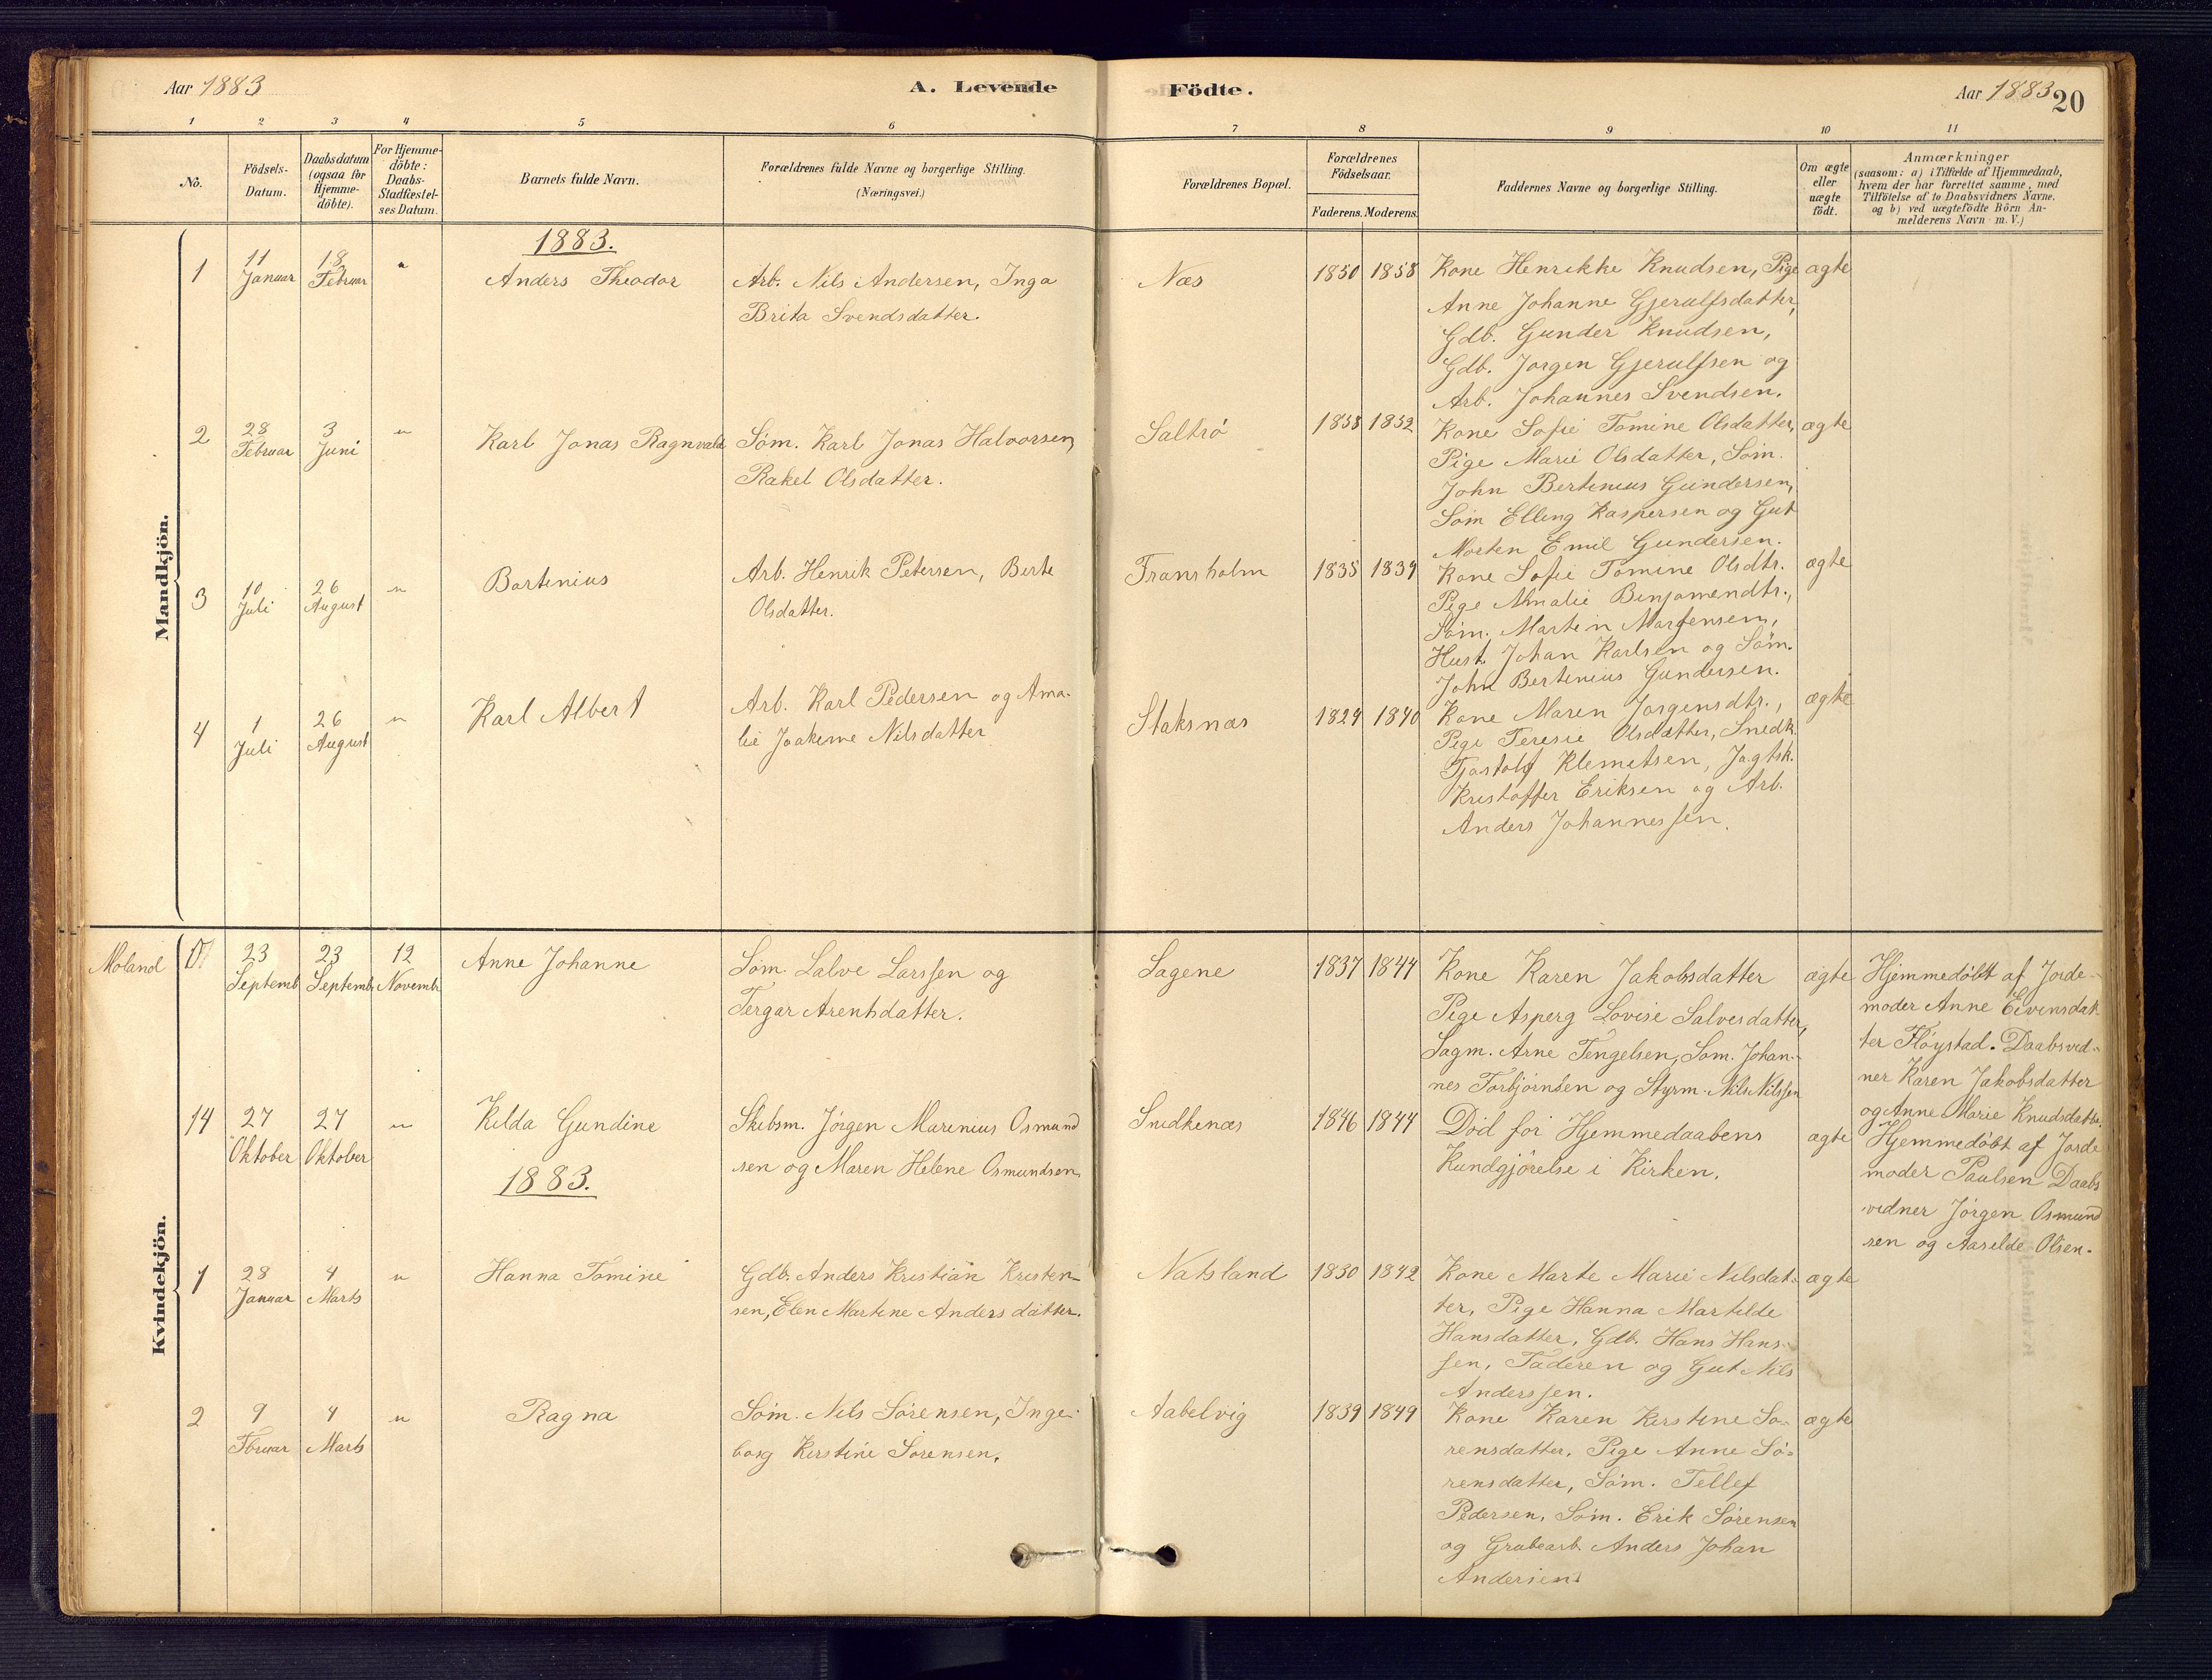 Aar 1883 A. Levende Födte. Aar 1883 20
1 2 3 4 5 6 7 8 9 10 11
No.
Födsels-
Datum.
Daabsdatum
(ogsaa for
Hjemme-
döbte).
For Hjemme-
döbte:
Daabs-
Stadfæstel-
ses Datum.
Barnets fulde Navn.
Forældrenes fulde Navne og borgerlige Stilling.
(Næringsvei.)
Forældrenes Bopæl.
Forældrenes
Födselsaar.
Faderens. Moderens.
Faddernes Navne og borgerlige Stilling.
Om ægte
eller
uægte
födt.
Anmærkninger
(saasom: a) i Tilfælde af Hjemmedaab,
hvem der har forrettet samme, med
Tilföielse af to Daabsvidners Navne,
og b) ved uægtefödte Börn An-
melderens Navn m. V.)
Mandkjön.
1883.
1
11
Januar
18
Februar
"
Anders Theodor
Arb. Nils Andersen, Inga
Brita Svendsdatter.
Næs
1850 1858
Kone Henrikke Knudsen, Pige
Anne Johanne Gjerulfsdatter,
Gdb. Gunder Knudsen,
Gdb. Jorgen Gjerulfsen og
Arb. Johannes Svendsen.
ægte
2
28
Februar
3
Juni
"
Karl Jonas Ragnvald
Søm. Karl Jonas Halvorsen,
Rakel Olsdatter.
Saltrø
1838 1832
Kone Sofie Tomine Olsdatter,
Pige Marie Olsdatter, Søm.
John Bertinius Gundersen,
Søm Elling Kaspersen og Gut
Morten Emil Gundersen.
ægte
3
10
Juli
26
August
"
Bertinius
Arb. Henrik Petersen, Berte
Olsdatter.
Fransholm
1835 1839
Kone Sofie Tomine Olsdtr.
Pige Amalie Benjamendtr.,
Søm. Martin
Hust. Johan Karlsen og Søm.
John Bertinius Gundersen.
ægte
4
1
Juli
26
August
"
Karl Albert
Arb. Karl Pedersen og Ama-
lie Joakime Nilsdatter
Staksnæs
1829 1840
Kone Maren Jorgensdtr.,
Pige Teresie Olsdatter, Snedk.
Tjostolf Klemetsen, Jagtsk.
Kristoffer Eriksen og Arb.
Anders Johannessen.
ægte
Kvindekjön.
Moland
23
Septemb.
23
Septemb.
12
Novembr.
Anne Johanne
Søm. Salve Larssen og
Tergar Arentsdatter.
Sagene
1837 1844
Kone Karen Jakobsdatter
Pige Asperg Lovise Salvesdatter,
Sagm. Arne Tengelsen, Søm. Johan-
nes Torbjørnsen og Styrm. Nils Nilssen
ægte
Hjemmedøbt af Jorde-
moder Anne Eivensdat-
ter Fløystad. Daabsvid-
ner Karen Jakobsdatter
og Anne Marie Knudsdatter.
14
27
Oktober
27
Oktober
"
Kilda Gundine
Skibsm. Jørgen Marinius Osmund
sen og Maren Helene Osmundsen.
Snedkenæs
1846 1844
Død før Hjemmedaabens
Kundgjørelse i Kirken.
ægte
Hjemmedøbt af Jorde
moder Paulsen Daabs
vidner Jørgen Osmund
sen og Aaselde Olsen.
1883.
1
28
Januar
4
Marts
"
Hanna Tomine
Gdb. Anders Kristian Kristen-
sen, Elen Martine Andersdatter.
Natsland
1830 1842
Kone Marte Marie Nilsdat-
ter, Pige Hanna Martilde
Hansdatter, Gdb. Hans Hans-
sen, Faderen og Gut Nils
Anderssen.
ægte
2
9
Fbruar
4
Marts
"
Ragna
Søm. Nils Sørensen, Inge-
borg Kirstine Sørensen.
Aabelvig
1839 1849
Kone Karen Kirstine Sø-
rensdatter, Pige Anne Sø-
rensdatter, Søm. Tellef
Pedersen, Søm. Erik Sørensen
og Grubearb. Anders Johan
Andersen.
ægte